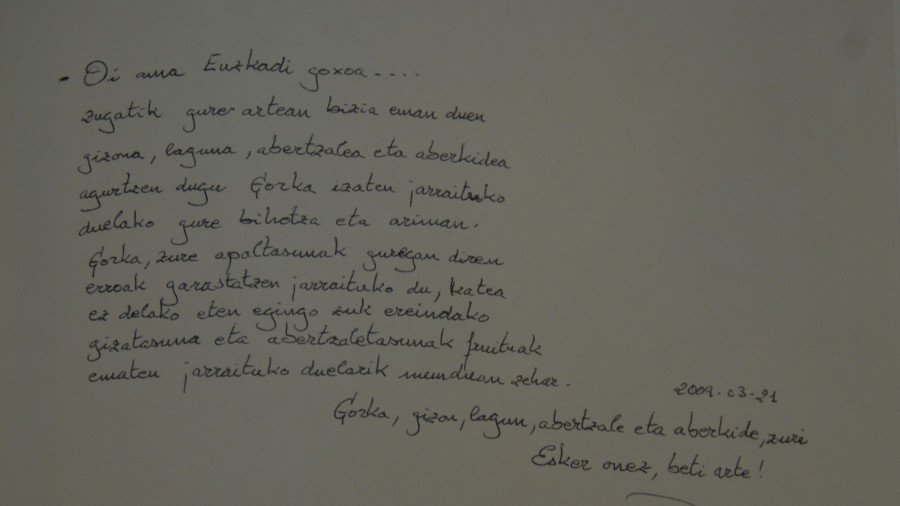 - Oi ama Euzkadi goxoa ....
zugatik gure artean bizia eman duen
gizona, laguna, abertzalea eta aberkidea
agurtzen dugu Gorka izaten jarraituko
duelako gure bihotza eta ariman.
Gorka, zure apaltasunak guregan diren
erroak garastatzen jarraituko du, katea
ez delako eten egingo zuk ereindako
gizatasuna eta abertzaletasunak fruituak
ematen jarraituko duelarik munduan zehar.
2009.03.21
Gorka, gizon, lagun, abertzale eta aberkide, zuri
Esker onez, beti arte!